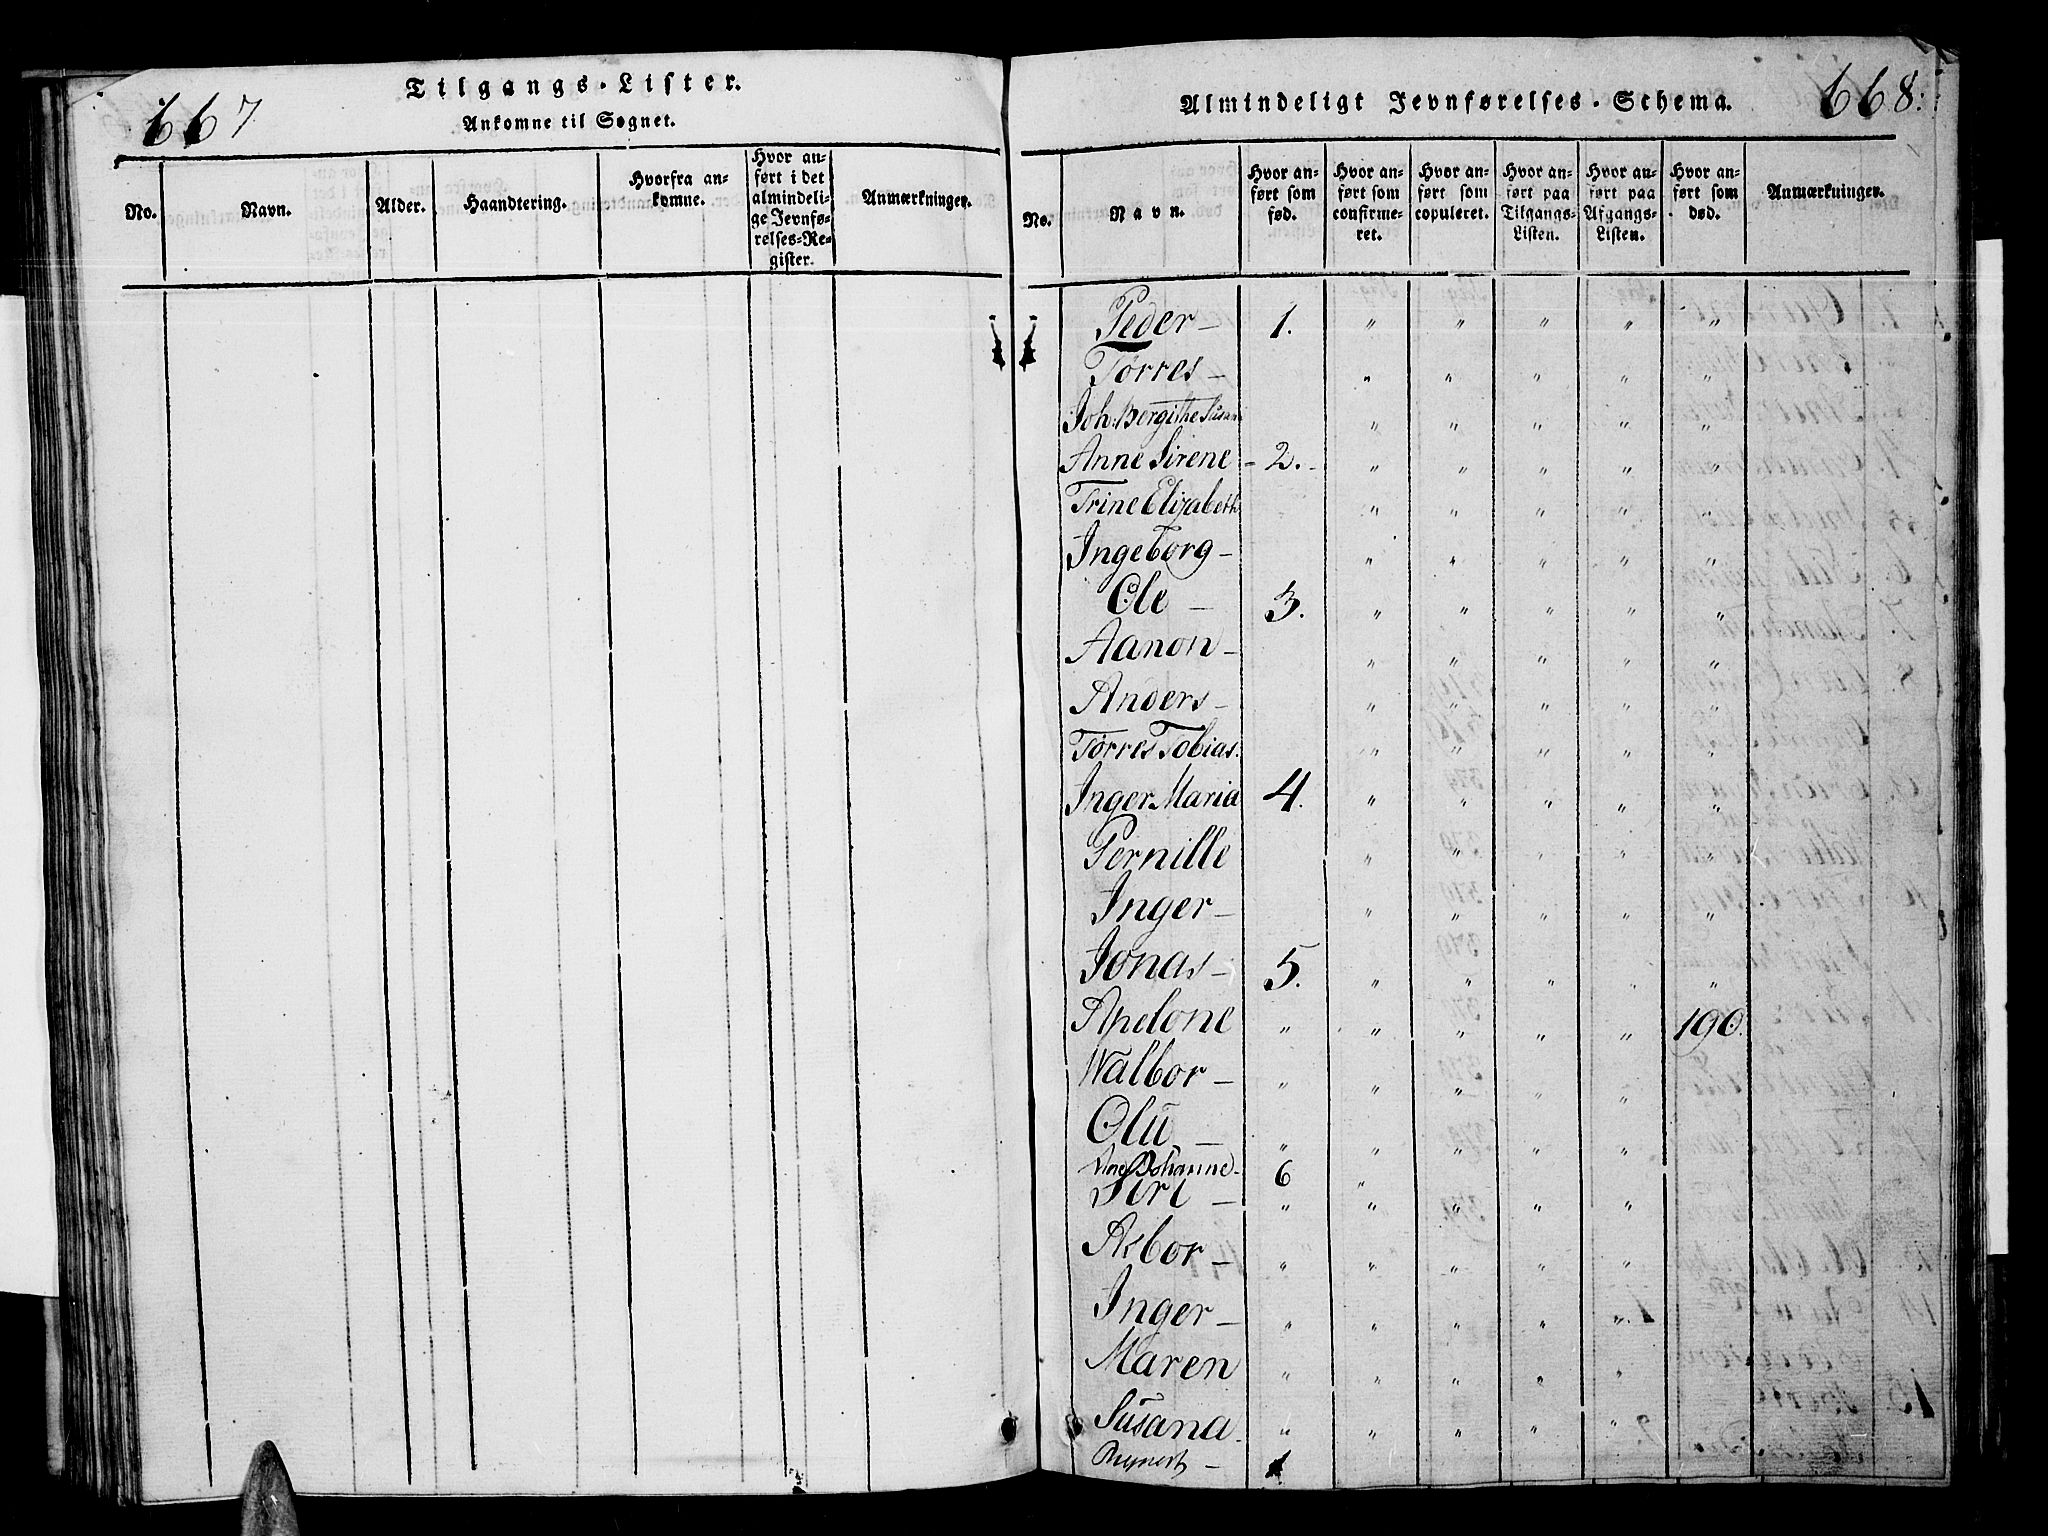 667
Tilgangs-Lister.
Ankomne til Sognet.
No. Navn. Alder. Haandtering. Hvorfra ankomne. Hvor anført i det almindelige Jevnførelses-Register. Anmærkninger.
668.
Almindeligt Jevnførelses-Schema.
No. Navn. Hvor anført som fød. Hvor anført som confirmeret. Hvor anført som copuleret. Hvor anført paa Tilgangs-Listen. Hvor anført paa Afgangs-Listen. Hvor anført som død. Anmærkninger.
Peder – 1. " " " " "
Torres – " " " " "
Joh: Bergithe Susan " " " " "
Anne Sirene – 2. – " " " " "
Trine Elizabeth " " " " "
Ingeborg – " " " " "
Ole – 3. " " " " "
Aanon – " " " " "
Anders – " " " " "
Torres Tobias. " " " " "
Inger Maria 4. " " " " "
Pernille " " " " "
Inger – " " " " "
Jonas – 5. " " " " "
Apelone " " " " " 190.
Walbor – " " " " "
Olu – " " " " "
Johanne – 6 "
Siri – " " " " "
Asbor – " " " " "
Inger – " " " " "
Maren " " " " "
Susana – " " " " "